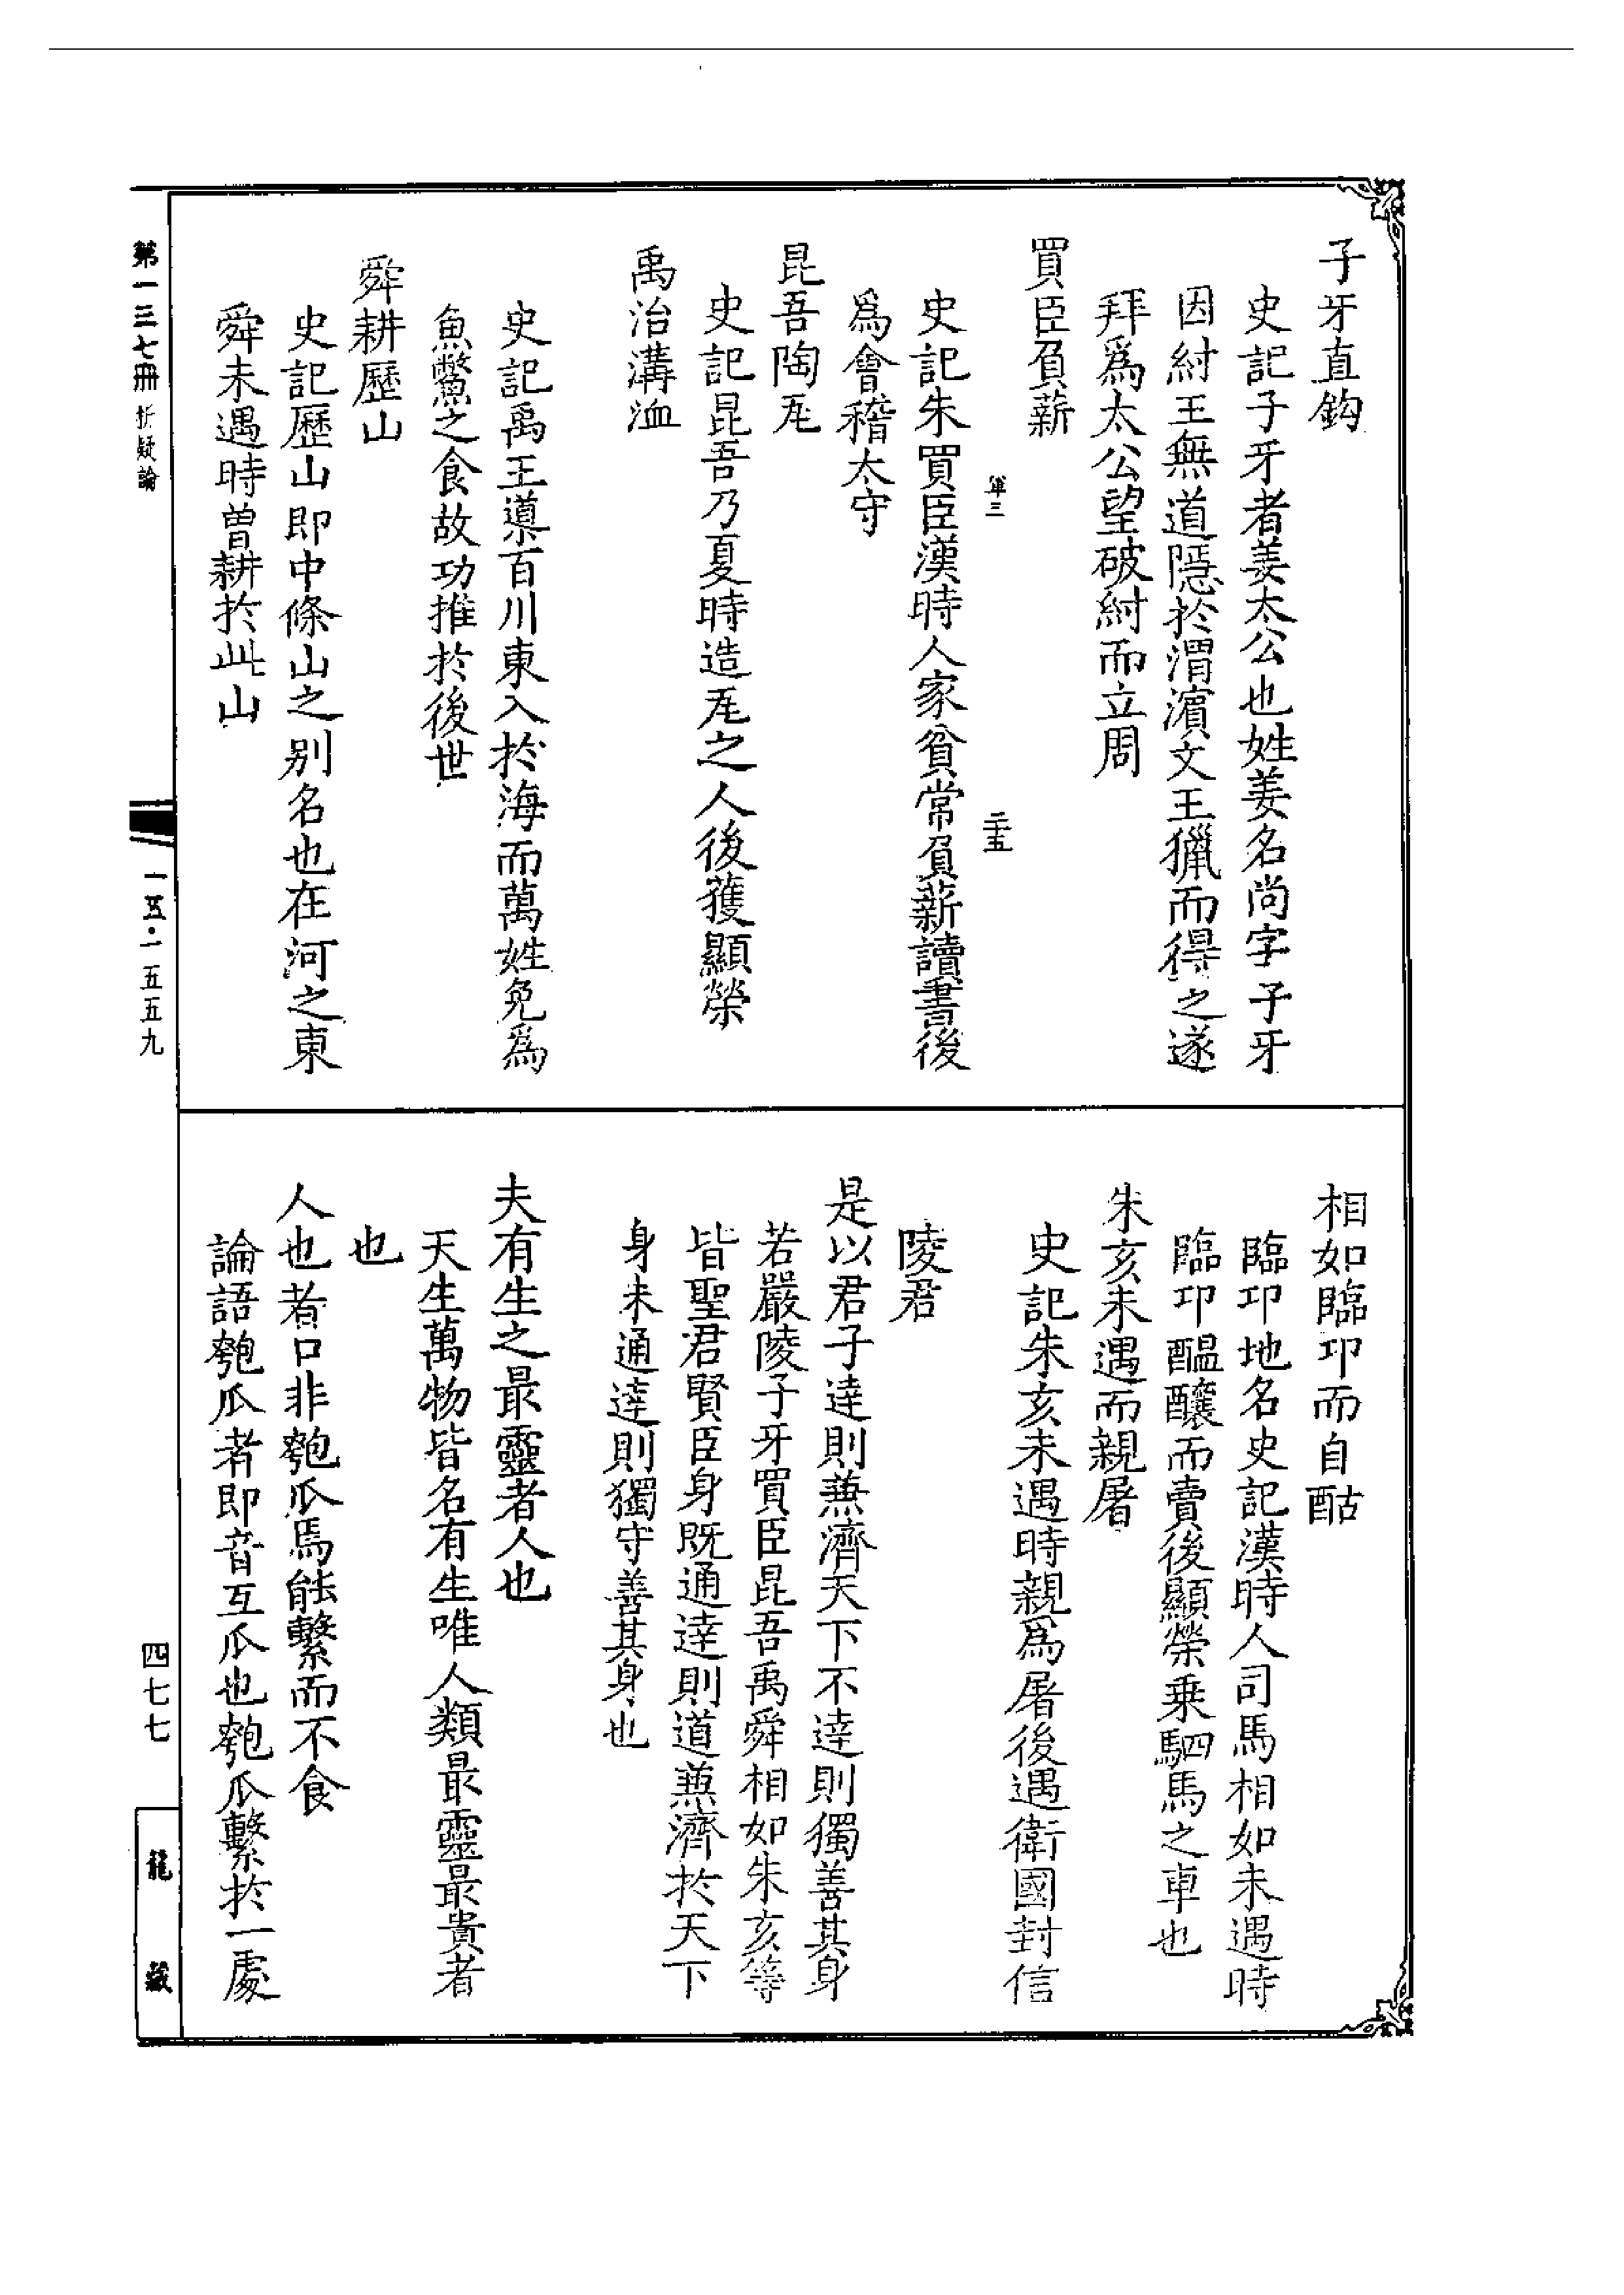 子牙直鈎
史記子牙者姜太公也姓姜名尚字子牙
因紂王無道隱於渭濵文王獵而得之遂
拜爲太公望破紂而立周
買臣負薪
軍三
二十五
史記朱買臣漢時人家貧常負薪讀書後
爲會稽太守
昆吾陶瓦
史記昆吾乃夏時造瓦之人後獲顯榮
禹治溝洫
史記禹王導百川東入於海而萬姓免爲
魚鱉之食故功推於後世
舜耕歷山
史記歷山即中條山之别名也在河之東
舜未遇時曾耕於此山
相如臨卭而自酤
臨卭地名史記漢時人司馬相如未遇時
臨卭醖釀而賣後顯榮乗駟馬之車也
朱亥未遇而親屠
史記朱亥未遇時親爲屠後遇衛國封信
陵君
是以君子達則兼濟天下不達則獨善其身
若嚴陵子牙買臣昆吾禹舜相如朱亥等
皆聖君賢臣身既通達則道兼濟於天下
身未通達則獨守善其身也
夫有生之最靈者人也
天生萬物皆名有生唯人類最靈最貴者
也
人也者口非匏瓜焉能繫而不食
論語匏瓜者即音互瓜也匏瓜繫於一處
第一三七冊 折疑論
一五·一五五九
四七七
龍藏